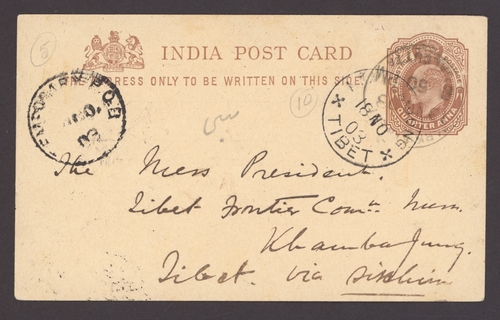 5
INDIA POST CARD
THE ADDRESS ONLY TO BE WRITTEN ON THIS SIDE.
QUARTER ANNA
10
18 NO
03
TIBET
P.O.B
NO.
03
The Mess President.
Tibet Frontier Comn. Mess.
Khamba Jung.
Tibet. via Sikkim